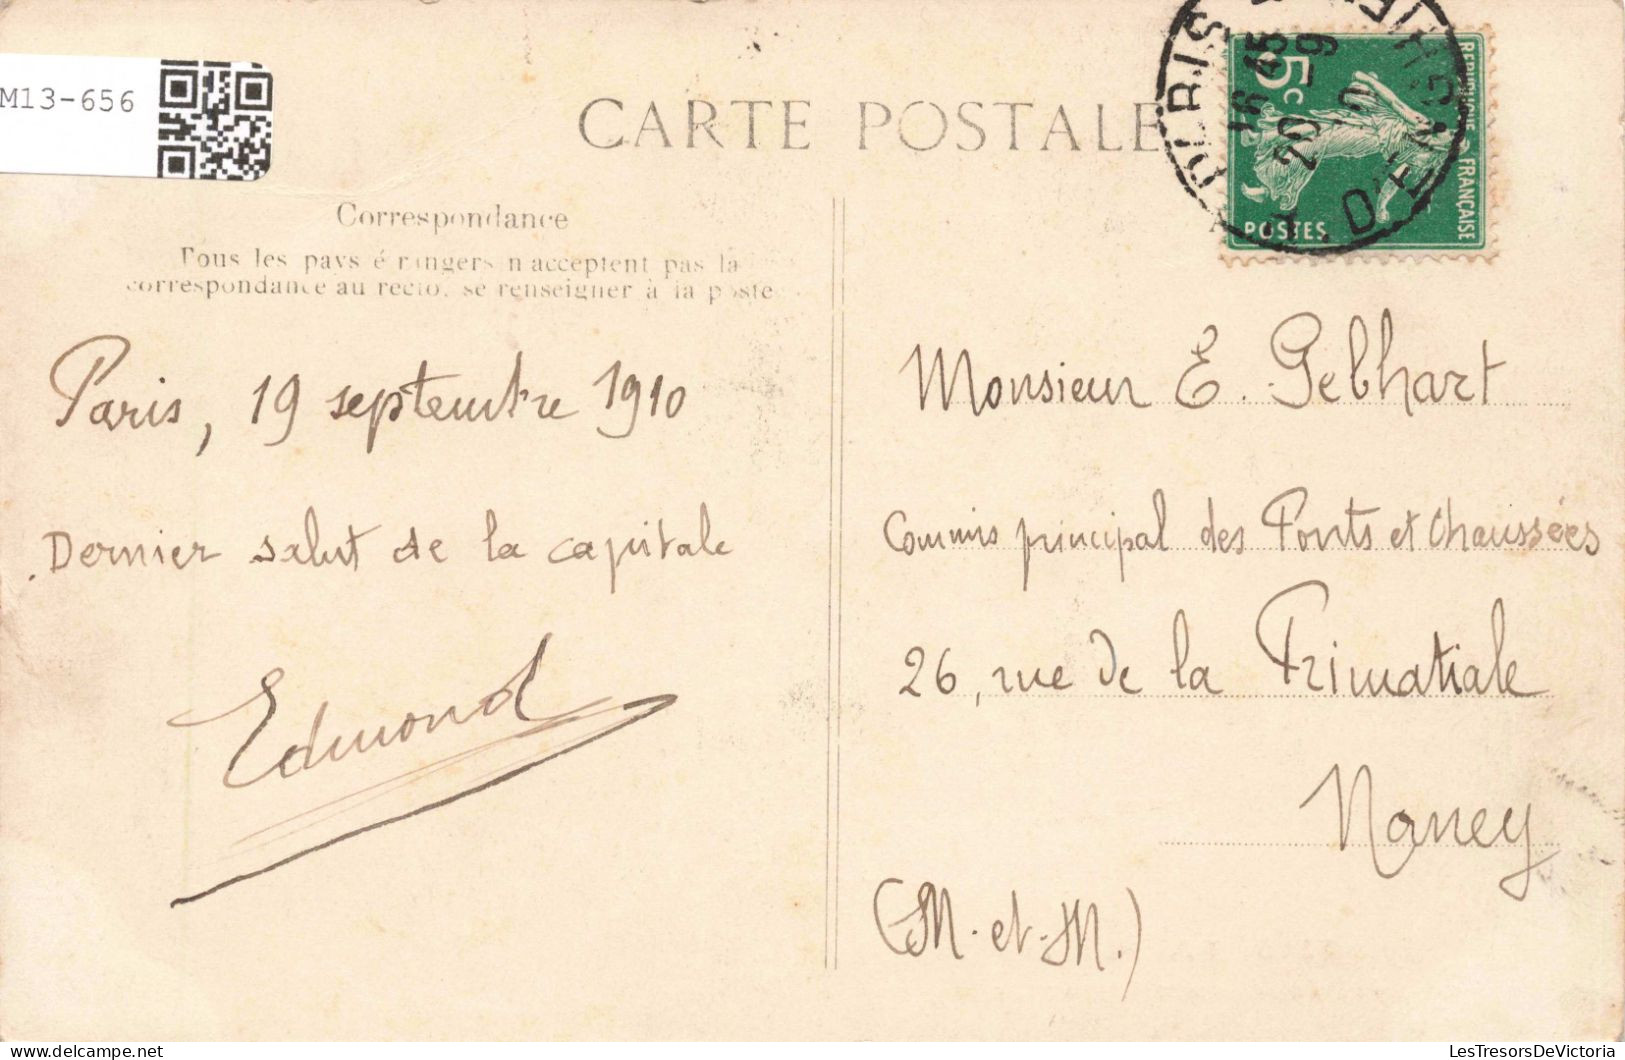 M13-656
CARTE POSTALE
Correspondance
Tous les pays étrangers n'acceptent pas la
correspondance au recto, se renseigner à la poste
Paris, 19 septembre 1910
Dernier salut de la capitale
Edmond
REPUBLIQUE FRANÇAISE
5c
POSTES
PARIS
16 45
20 -9
10
Monsieur E. Gebhart
Commis principal des Ponts et Chaussées
26, rue de la Primatiale
Nancy
(M. et. M.)
LesTresorsDeVictoria